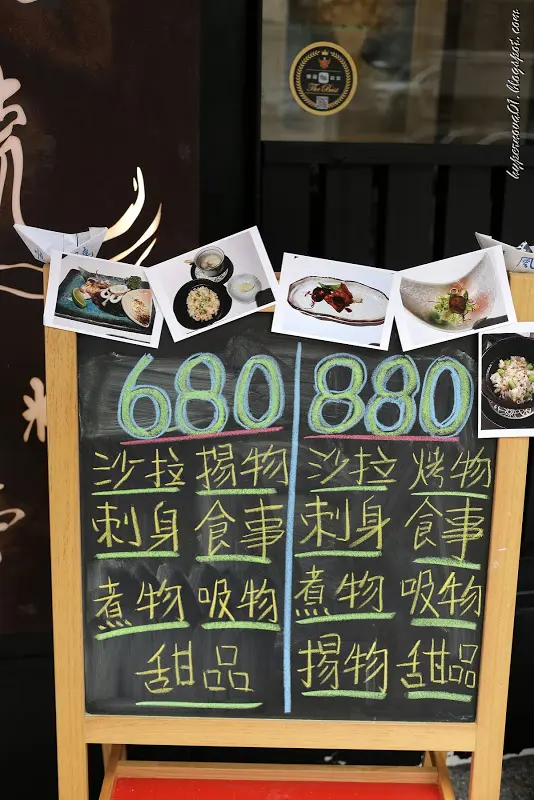 hypernova01.blogspot.com
The Best
680
沙拉 揚物
刺身 食事
煮物 吸物
甜品
880
沙拉 烤物
刺身 食事
煮物 吸物
揚物 甜品